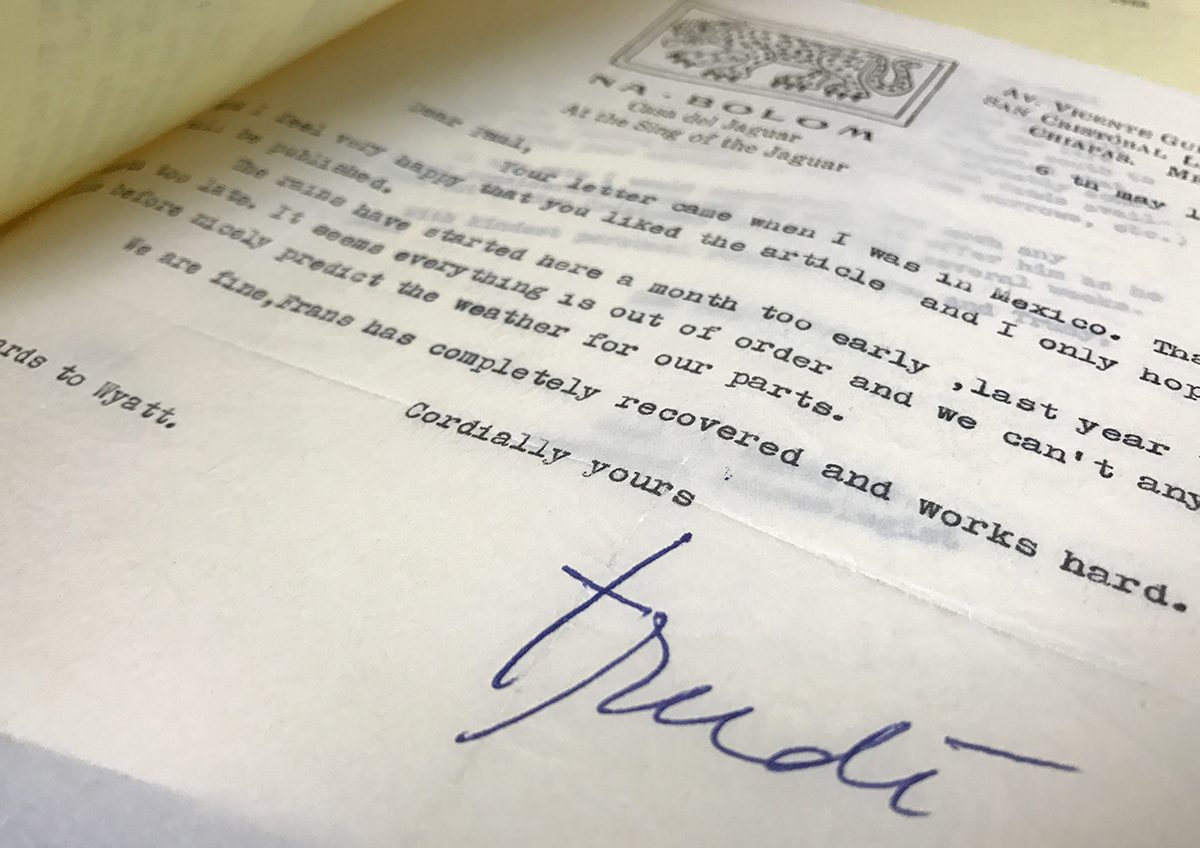 NA-BOLOM
Casa del Jaguar
At the Sing of the Jaguar
AV. VICENTE
SAN CRISTÓBAL
CHIAPAS.
6 th may
Dear
Your letter came when I was in Mexico.
I feel very happy that you liked the article and I only
be published.
The rains have started here a month too early ,last year
too late. It seems everything is out of order and we can't
before nicely predict the weather for our parts.
We are fine,Frans has completely recovered and works hard.
to Wyatt.
Cordially yours
Trudi